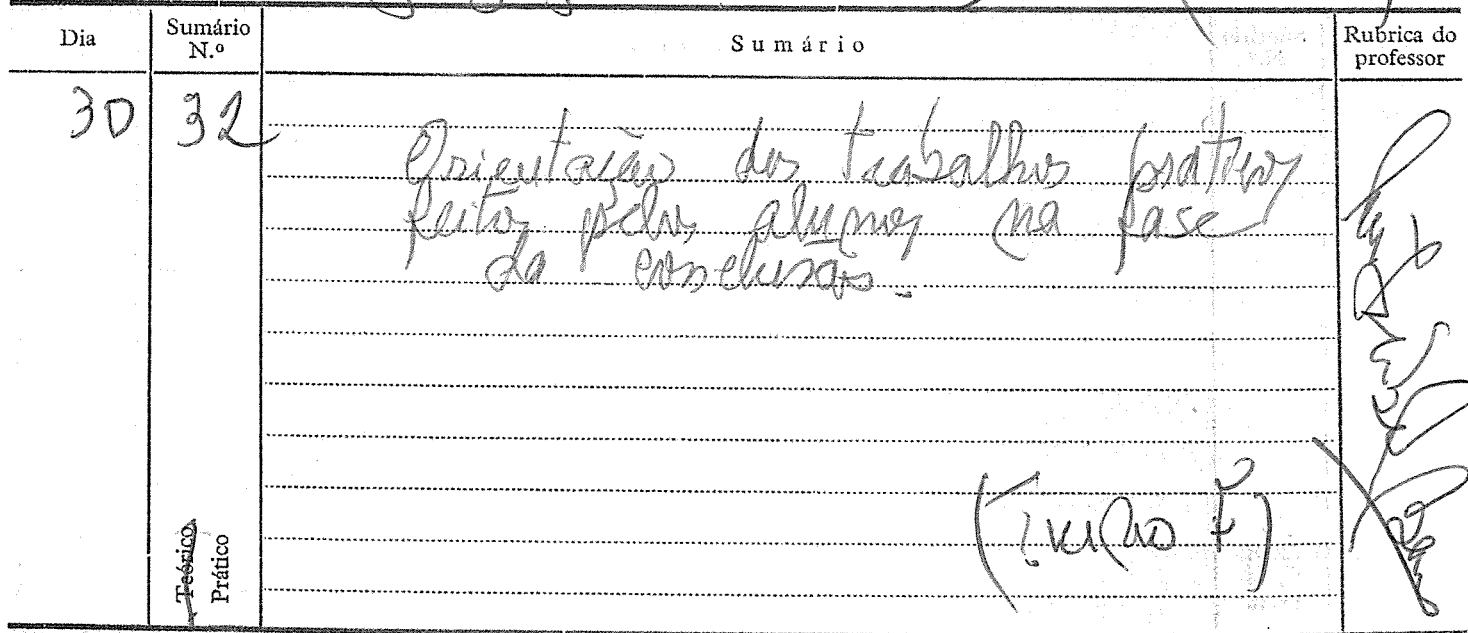 Dia
Sumário
N.º
Sumário
Rubrica do
professor
30
32
Orientação dos trabalhos práticos
feitos pelos alunos na fase
da conclusão.
(Turno F)
Teórico
Prático